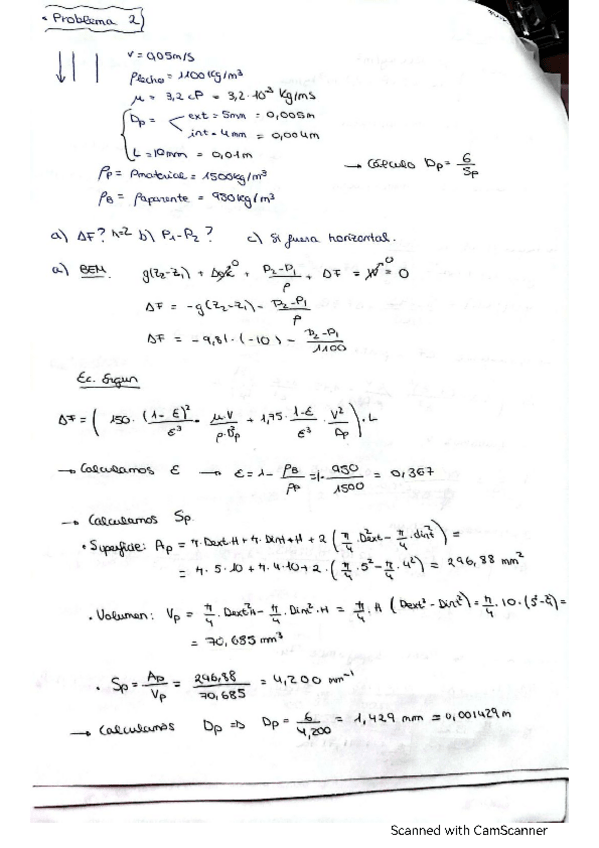 • Problema 2)
v = 0,05 m/s
ρlecho = 1100 kg/m³
μ = 3,2 cP = 3,2·10⁻³ kg/ms
Dp = ext = 5mm = 0,005m
int = 4mm = 0,004m
L = 10mm = 0,01m
→ Cálculo Dp = 6/Sp
ρp = ρmaterial = 1500 kg/m³
ρB = ρaparente = 950 kg/m³
a) ΔF? h=2 b) P1-P2? c) Si fuera horizontal.
a) BEM. g(z2-z1) + + P2-P1/ρ + ΔF = W = 0
ΔF = -g(z2-z1) - P2-P1/ρ
ΔF = -9,81·(-10) - P2-P1/1100
Ec. Ergun
ΔF = (150 · (1-ε)²/ε³ · μ·V/ρ·Dp² + 1,75 · 1-ε/ε³ · V²/Dp) · L
→ Calculamos ε → ε = 1 - ρB/ρp = 1 - 950/1500 = 0,367
→ Calculamos Sp
• Superficie: Ap = π·Dext·H + π·Dint·H + 2 (π/4 · Dext² - π/4 · dint²) =
= π·5·10 + π·4·10 + 2·(π/4 · 5² - π/4 · 4²) = 296,88 mm²
• Volumen: Vp = π/4 · Dext²·H - π/4 · Dint²·H = π/4 · H (Dext² - Dint²) = π/4 · 10 · (5² - 4²) =
= 70,685 mm³
• Sp = Ap/Vp = 296,88/70,685 = 4,200 mm⁻¹
→ Calculamos Dp ⇒ Dp = 6/4,200 = 1,429 mm = 0,001429 m
Scanned with CamScanner